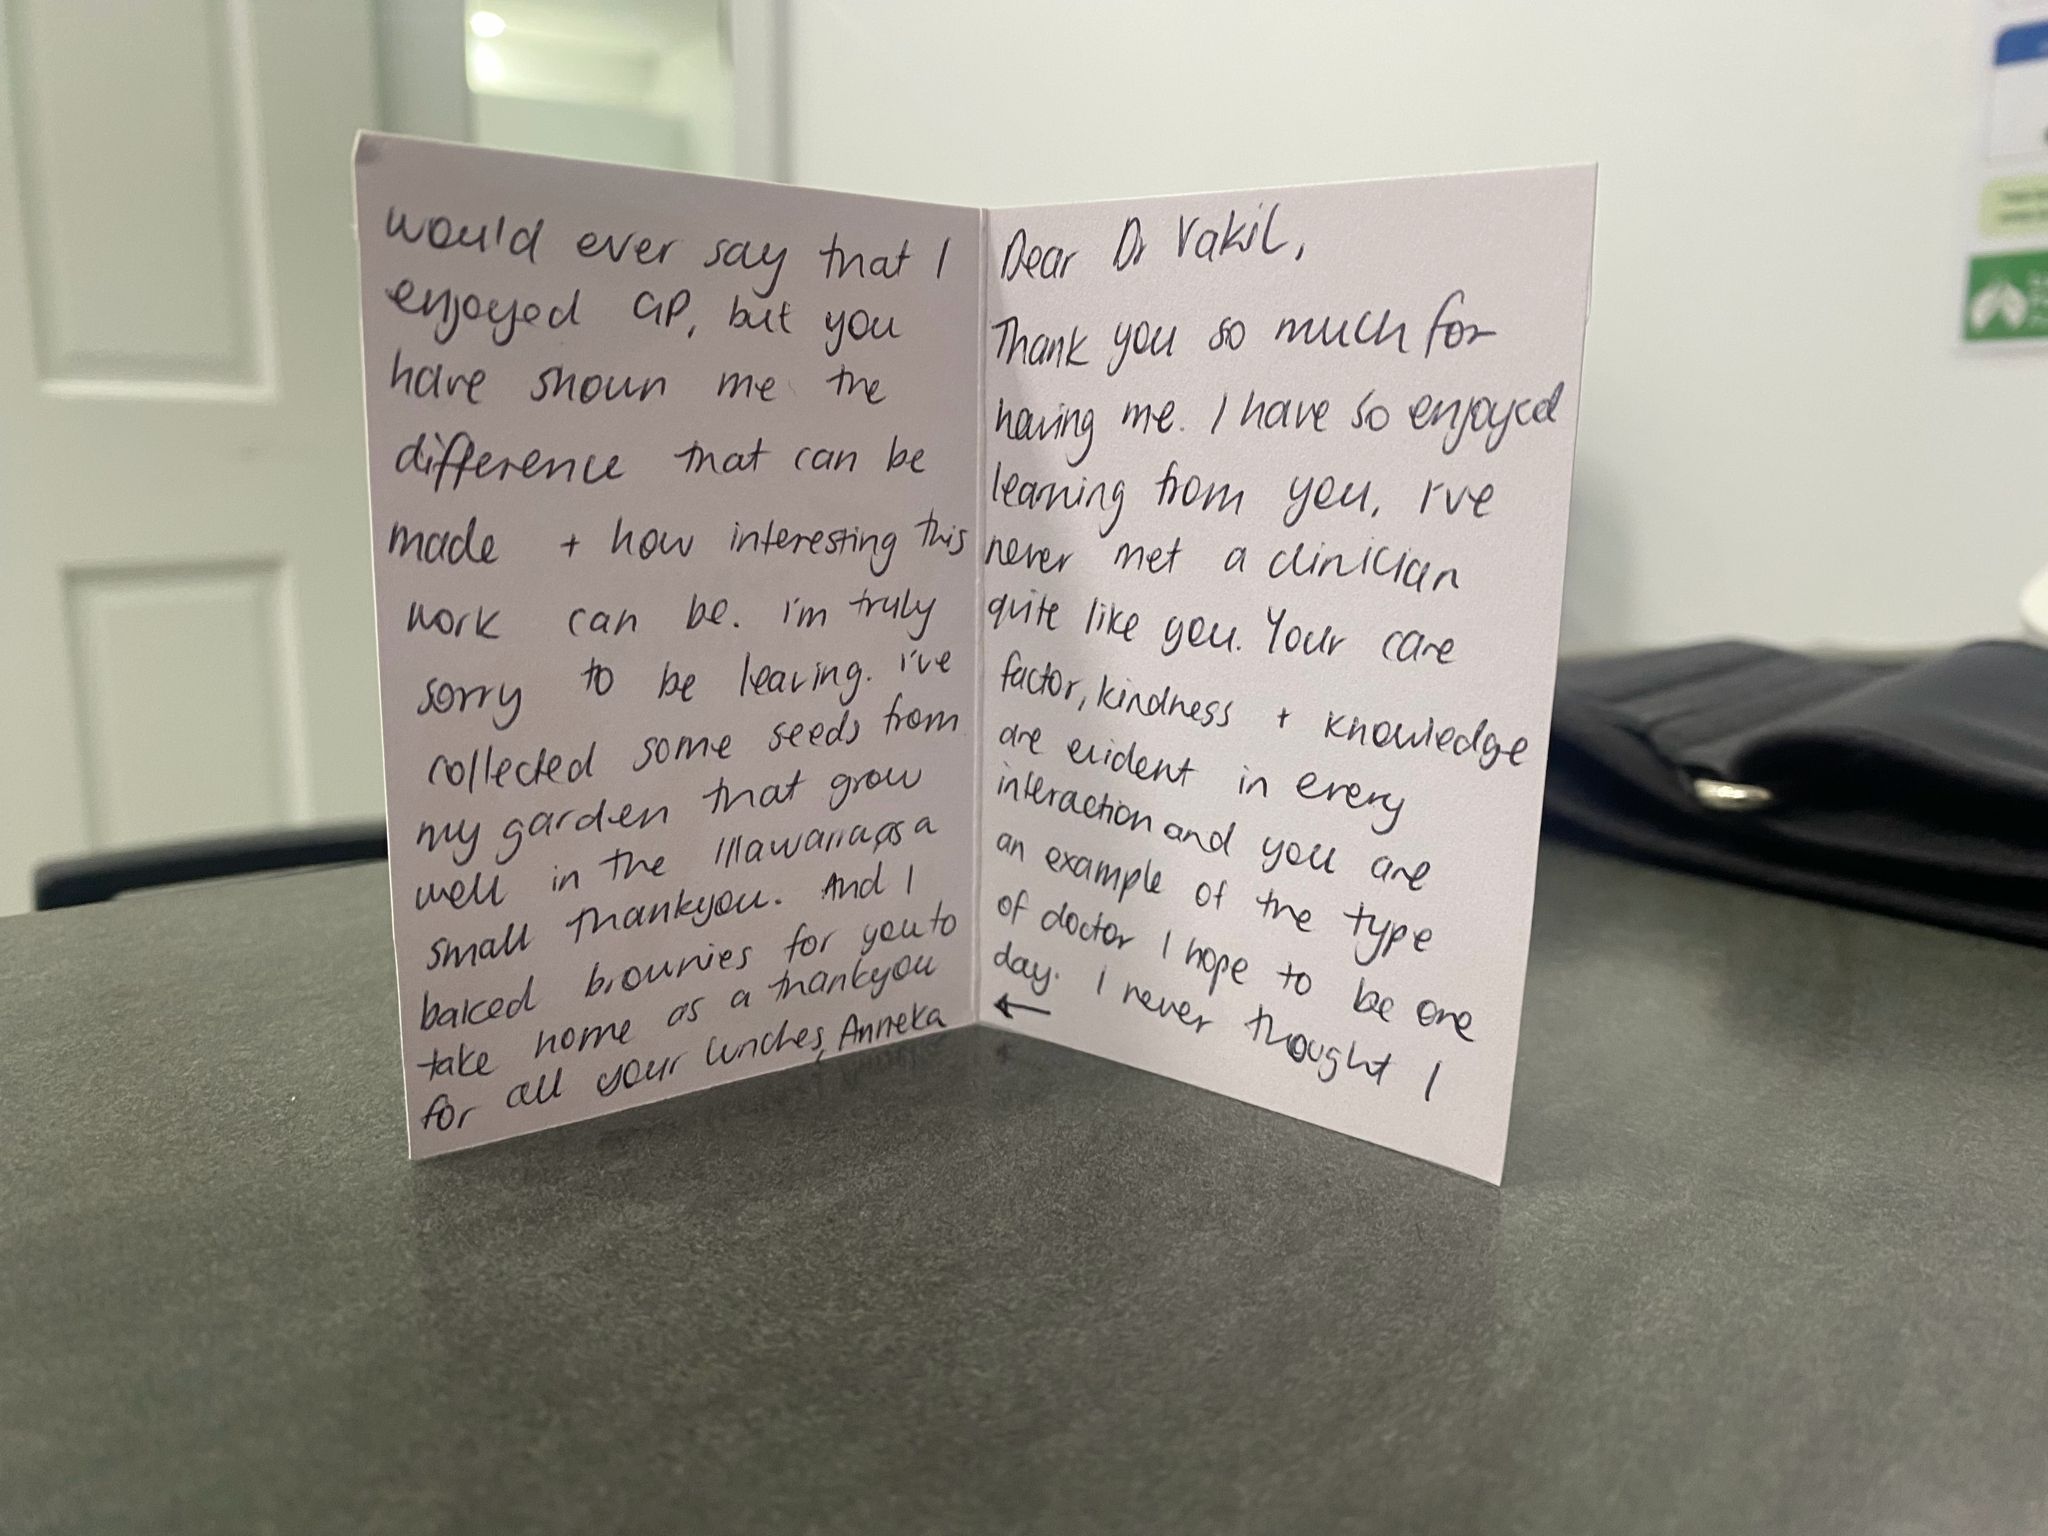 Dear Dr Vakil,
Thank you so much for
having me. I have so enjoyed
learning from you, I've
never met a clinician
quite like you. Your care
factor, kindness + knowledge
are evident in every
interaction and you are
an example of the type
of doctor I hope to be one
day. I never thought I
←
would ever say that I
enjoyed GP, but you
have shown me the
difference that can be
made + how interesting this
work can be. I'm truly
sorry to be leaving. I've
collected some seeds from
my garden that grow
well in the Illawarra, as a
small thankyou. And I
baked brownies for you to
take home as a thankyou
for all your lunches, Anneka